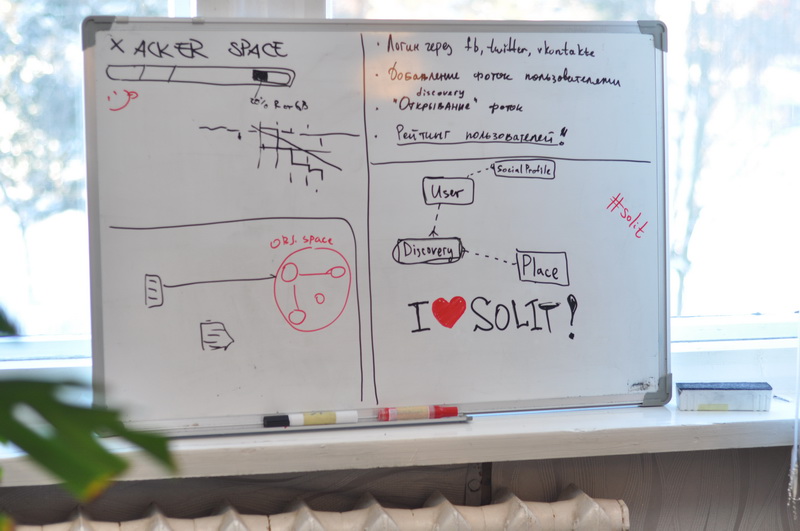 XACKER SPACE
OBJ. space
• Логин через fb, twitter, vkontakte
• Добавление фоток пользователями
discovery
• "Открывание" фоток
• Рейтинг пользователей!
Social Profile
User
Discovery
Place
#solit
I ❤ SOLIT!